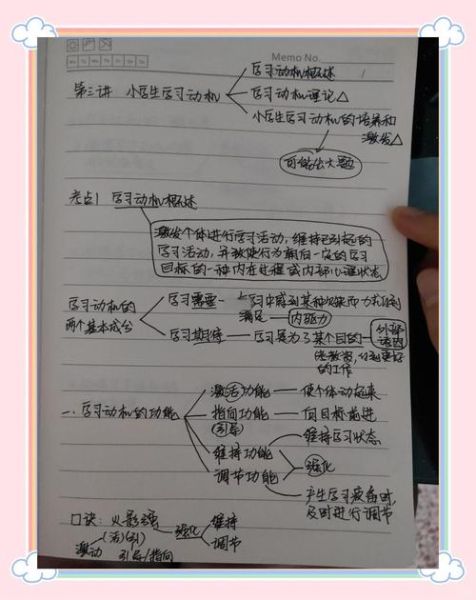 Memo No.
Mo Tu We Th Fr Sa Su
学习动机概述
第三讲 小学生学习动机
学习动机理论△
小学生学习动机的培养和
激发△
可能出大题
考点1 学习动机概述
激发个体进行学习活动,维持已引起的
学习活动,并致使行为朝向一定的学习
目标的一种内在过程或内部心理状态
学习动机的
两个基本成分
学习需要 — 学习中感到某种欠缺而力求得到
满足 — 内驱力
学习期待 — 学习是为了某个目的 — 外部
诱因
的工作
一、学习动机的功能
激活功能 — 使个体动起来
指向功能 — 向目标前进
(引导)
维持功能 — 维持学习状态
强化
调节功能
产生学习疲倦时,
及时进行调节
口诀:火影强 — 强化
维持
调节
(活)(引)
激动 引导/指向